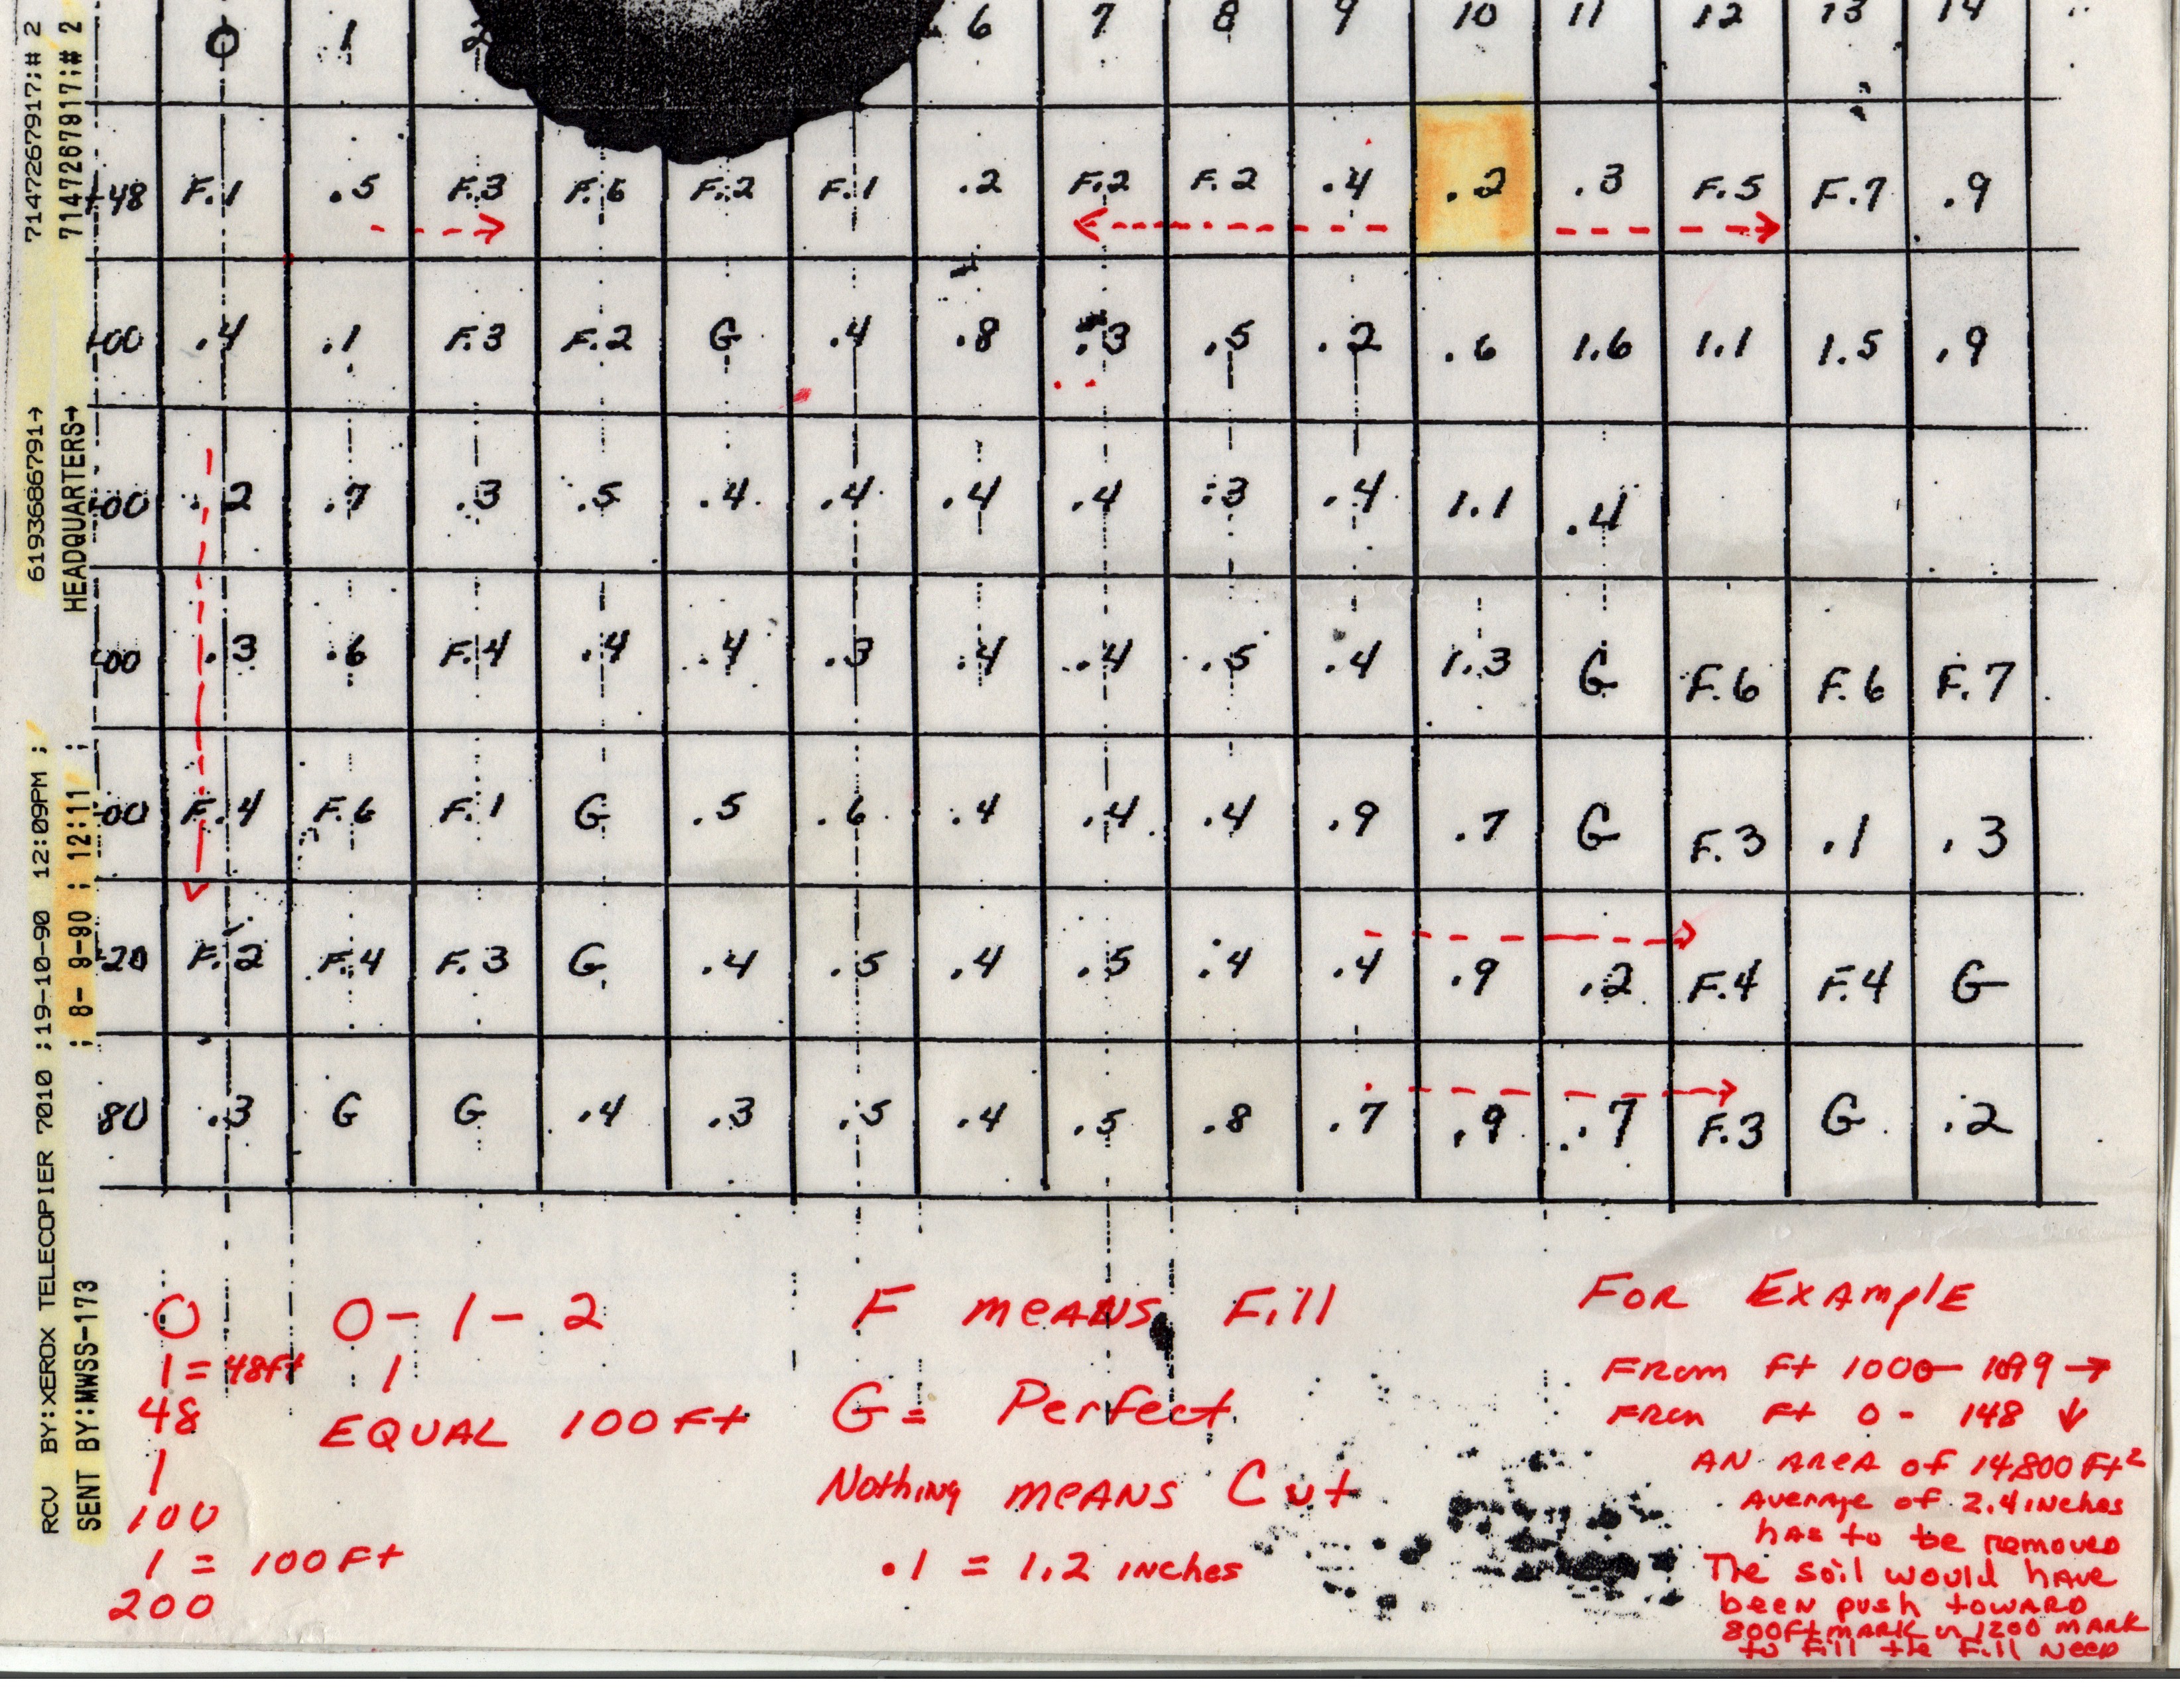 714726791 7;# 2
714 7267917;# 2
619368679 1→
HEADQUARTERS→
RCV BY:XEROX TELECOPIER 7010 ;19-10-90 12:09PM ;
SENT BY:MWSS-173 ; 8- 9-90 ; 12:11 ;
0 1 6 7 8 9 10 11 12 13 14
+48 F.1 .5 F.3 F.6 F.2 F.1 .2 F.2 F.2 .4 .2 .3 F.5 F.7 .9
+00 .4 .1 F.3 F.2 G .4 .8 .3 .5 .2 .6 1.6 1.1 1.5 .9
+00 .2 .7 .3 .5 .4 .4 .4 .4 .3 .4 1.1 .4
+00 .3 .6 F.4 .4 .4 .3 .4 .4 .5 .4 1.3 G F.6 F.6 F.7
+00 F.4 F.6 F.1 G .5 .6 .4 .4 .4 .9 .7 G F.3 .1 .3
+20 F.2 F.4 F.3 G .4 .5 .4 .5 .4 .4 .9 .2 F.4 F.4 G
80 .3 G G .4 .3 .5 .4 .5 .8 .7 .9 .7 F.3 G .2
0
1 = 48ft
48
1
100
1 = 100 Ft
200
0 - 1 - 2
1
EQUAL 100 Ft
F means Fill
G = Perfect
Nothing means Cut
.1 = 1.2 inches
For Example
From ft 1000 - 1099 →
From ft 0 - 148 ↓
An area of 14,800 Ft²
Average of 2.4 inches
has to be removed
The soil would have
been push toward
800ft mark n 1200 mark
to fill the fill need